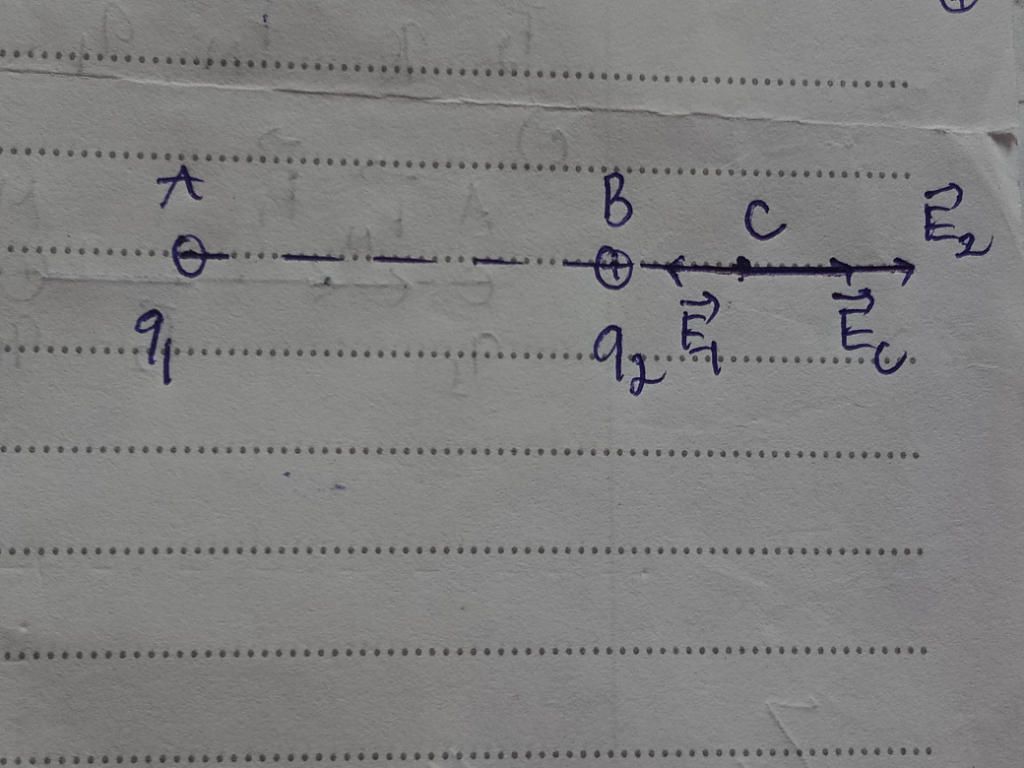 A B C E⃗₂
⊖ ⊕
q₁ q₂ E⃗₁ E⃗c